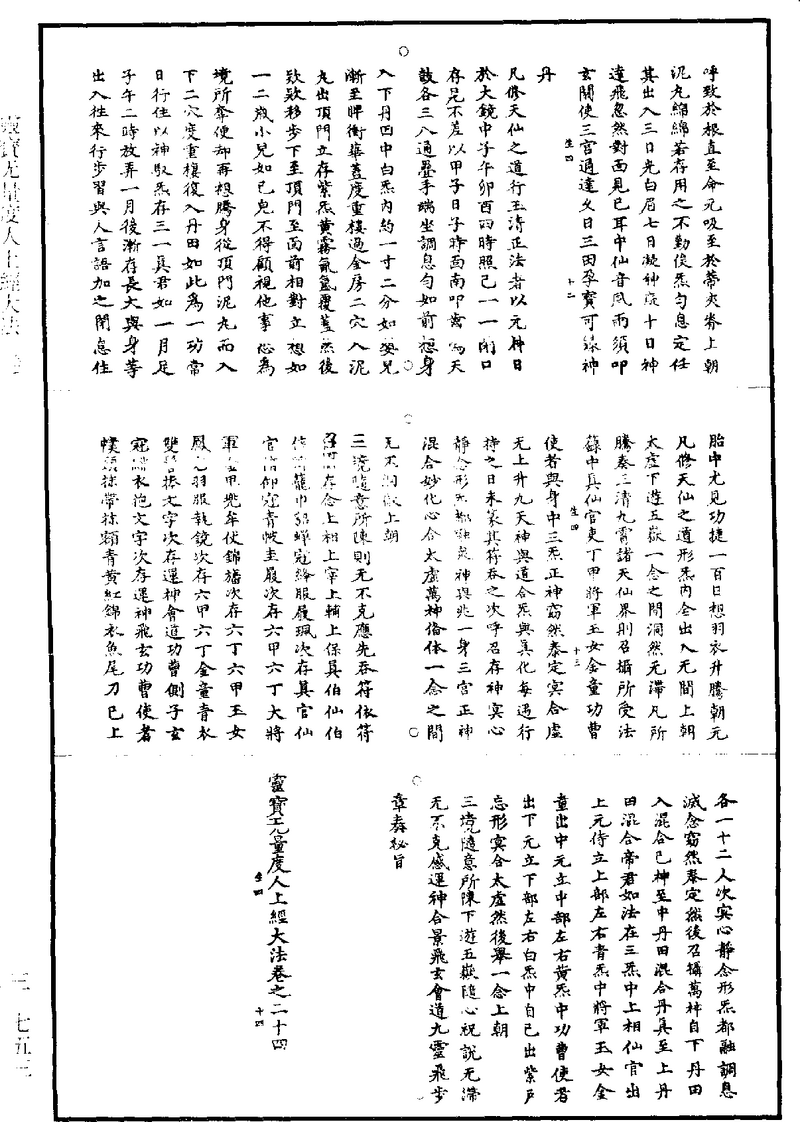 呼致於根直至命元吸至於蒂夾脊上朝
泥丸綿綿若存用之不勤俟炁勻息定任
其出入三日光白眉七日凝神藏十日神
達飛忽然對面見已耳中仙音風雨須叩
玄關使三宮通達久日三田孕寶可鍊神
生四
十二
丹
凡修天仙之道行玉清正法者以元神日
於大鏡中子午卯酉四時照己一一閉口
存見不差以甲子日子時面南叩齒鳴天
鼓各三八通疊手端坐調息勻如前想身
入下丹田中白炁內約一寸二分如嬰兒
漸至脾衝華蓋度重樓過金房二穴入泥
丸出頂門立存紫炁黃霧氤氳覆蓋然後
欵欵移步下至頂門至面前相對立想如
一二歲小兒如已皃不得顧視他事恐為
境所牽便却再想騰身從頂門泥丸而入
下二穴度重樓復入丹田如此為一功常
日行住以神馭炁存三一真君如一月足
子午二時放弄一月後漸存長大與身等
出入往來行步習與人言語加之閉息住
胎中尤見功捷一百日想羽衣升騰朝元
凡修天仙之道形炁內全出入无間上朝
太虛下遊五嶽一念之間洞然无滯凡所
騰奏三清九霄諸天仙界則召攝所受法
籙中真仙官吏丁甲將軍玉女金童功曹
生四
十三
使者與身中三炁正神窈然泰定冥合虛
无上升九天神與道合炁與真化每遇行
持之日朱篆其符吞之次呼召存神冥心
靜念形炁都融炁神混兆一身三宮正神
混合妙化心合太虛萬神俻体一念之間
无不洞徹上朝
三境隨意所陳則无不克應先吞符依符
存念上相上宰上輔上保真伯仙伯
龍巾貂蟬冠絳服履珮次存真官仙
官冠青帔圭履次存六甲六丁大將
軍金甲兜牟伏錦旛次存六丁六甲玉女
鳳冠羽服執鏡次存六甲六丁金童青衣
雙髻捧文字次存運神會道功曹側子玄
冠緋衣抱文字次存運神飛玄功曹使者
幞頭抹帶抹額青黃紅錦衣魚尾刀已上
各一十二人次冥心靜念形炁都融調息
滅念窈然泰定然後召攝萬神自下丹田
入混合己神至中丹田混合丹真至上丹
田混合帝君如法在三炁中上相仙官出
上元侍立上部左右青炁中將軍玉女金
童出中元立中部左右黃炁中功曹使者
出下元立下部左右白炁中自己出紫戶
忘形冥合太虛然後舉一念上朝
三境隨意所陳下遊五嶽隨心祝說无滯
无不克感運神合景飛玄會道九靈飛步
章奏秘旨
靈寶无量度人上經大法卷之二十四
生四
十四
靈寶无量度人上經大法
三 七五三